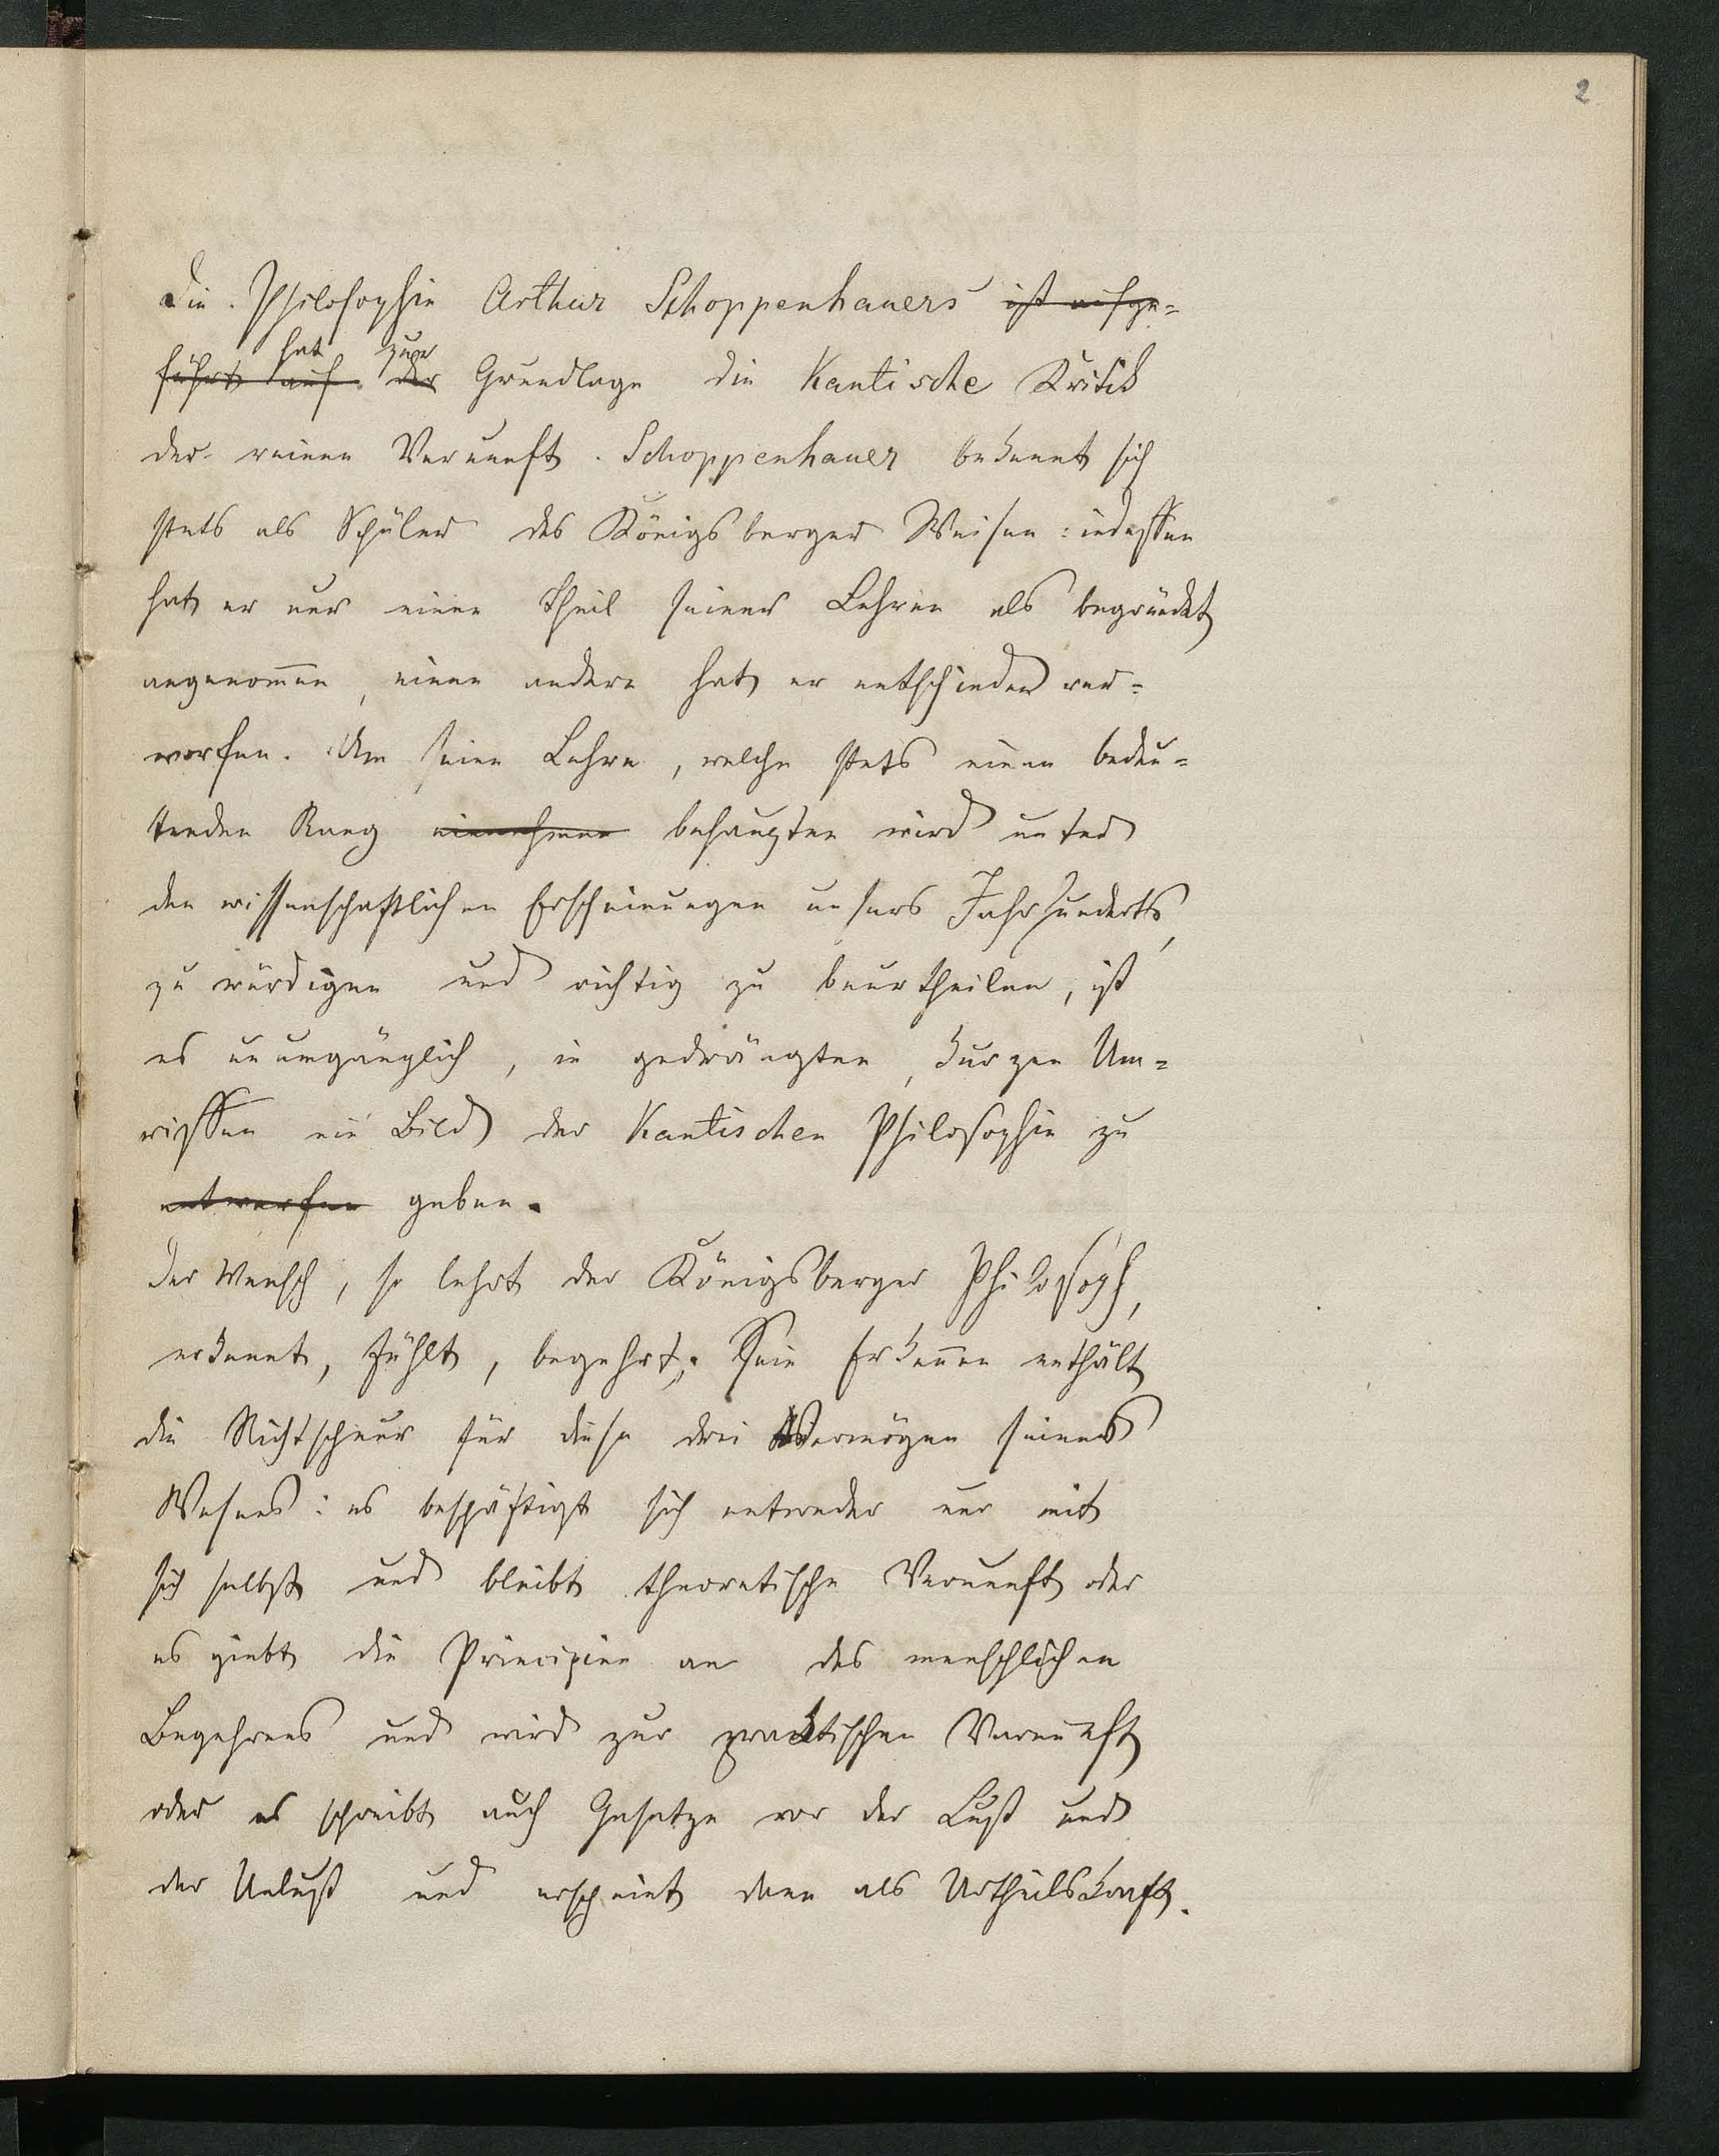 2
Die Philosophie Arthur Schoppenhauers ist aufge-
hat zur
führt auf der Grundlage die Kantische Kritik
der reinen Vernunft. Schoppenhauer bekennt sich
stets als Schüler des Königsberger Weisen: indessen
hat er nur einen Theil seiner Lehren als begründet
angenom̄en, einen andern hat er entschieden ver-
worfen. Um seine Lehre, welche stets einen bedeu-
tenden Rang einnehmen behaupten wird unter
den wissenschaftlichen Erscheinungen unsers Jahrhunderts,
zu würdigen und richtig zu beurtheilen, ist
es unumgänglich, in gedrängten, kurzen Um-
rissen ein Bild der Kantischen Philosophie zu
entwerfen geben.
Der Mensch, so lehrt der Königsberger Philosoph,
erkennt, fühlt, begehrt; Sein Erkeñen enthält
die Richtschnur für diese drei Vermögen seines
Wesens: es beschäftigt sich entweder nur mit
sich selbst und bleibt theoretische Vernunft oder
es giebt die Principien an des menschlichen
Begehrens und wird zur praktischen Vernunft
oder es schreibt auch Gesetze vor der Lust und
der Unlust und erscheint dann als Urtheilskraft.